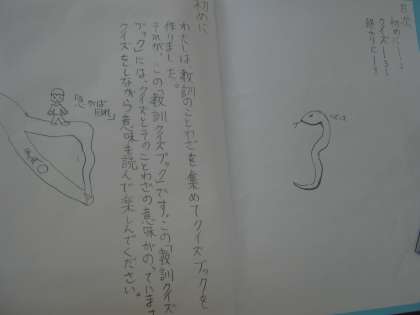 目次
初めに…1
クイズ…
終わりに…
初めに
わたしは、教訓のことわざを集めてクイズブックを
作りました。
それが、この「教訓クイズブック」です。この「教訓クイズ
ブック」には、クイズとそのことわざの意味がのっています
クイズをしながら意味を読んで楽しんでください。
「急がば
回れ」